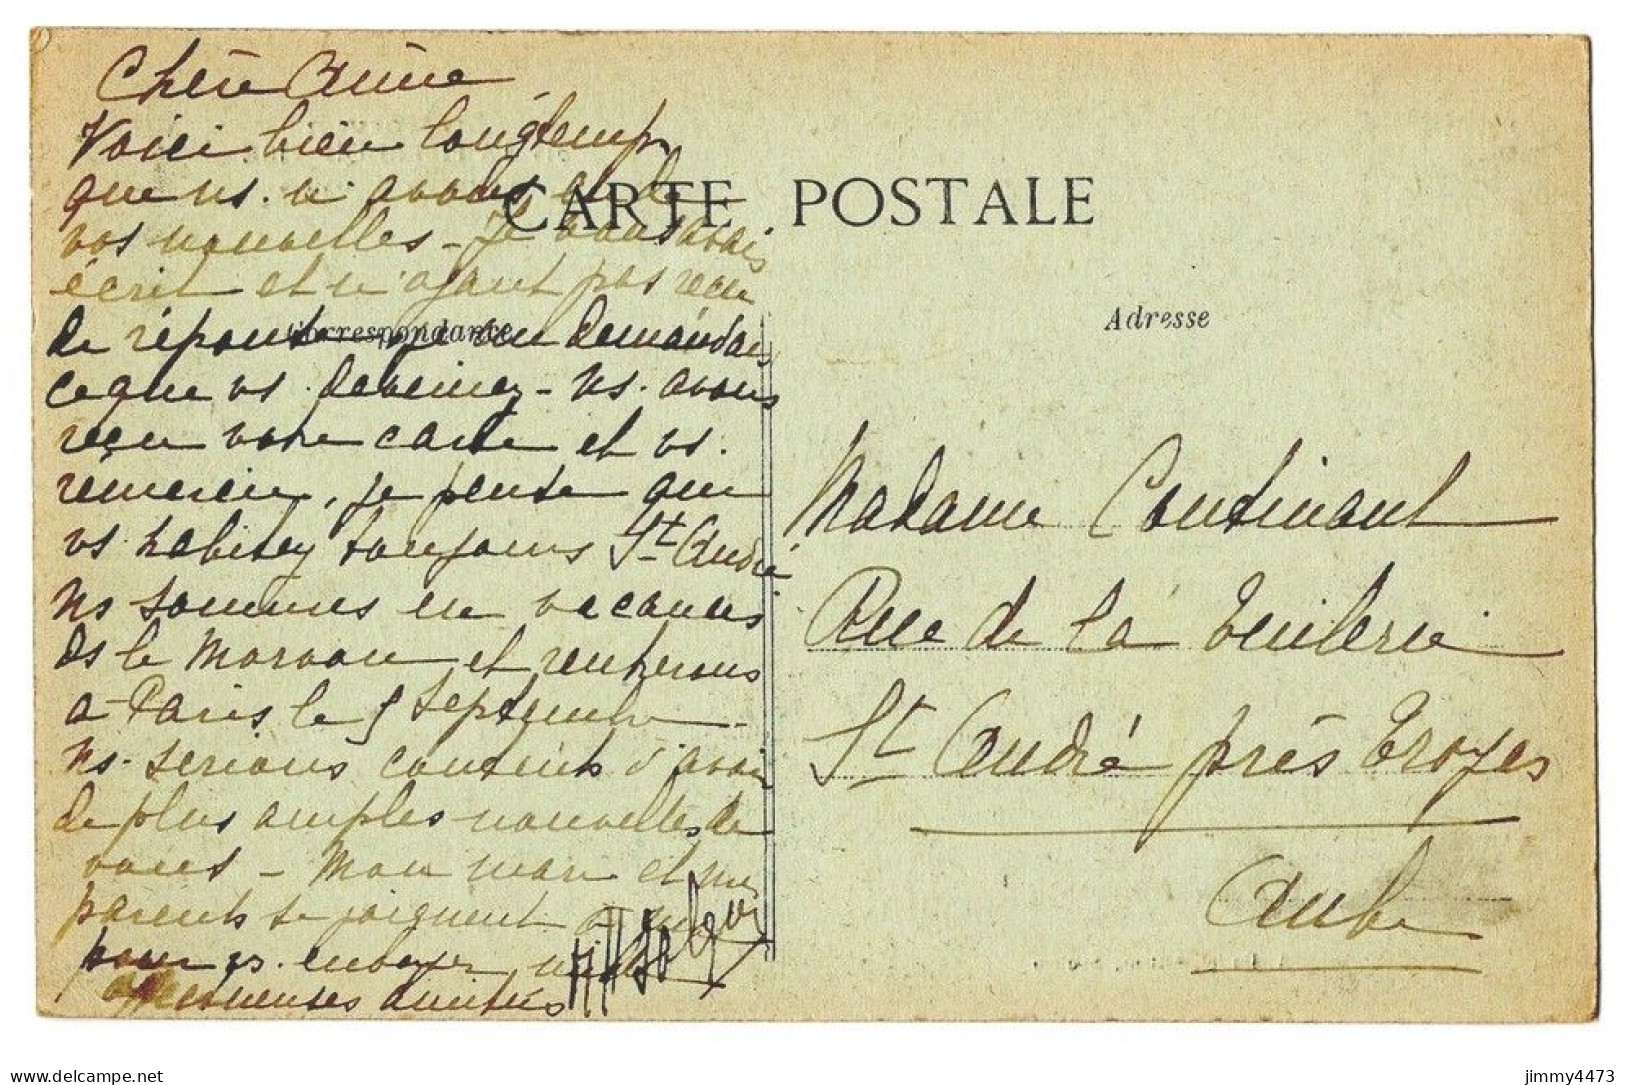 Chère Amie
Voici bien longtemps
que ns. n'avons eu de
vos nouvelles - je vous avais
écrit et n'ayant pas reçu
de réponse je me demandais
ce que vs. deveniez - Ns. avons
reçu votre carte et vs.
remercie, je pense que
vs habitez toujours St André
Ns sommes en vacances
ds le Morvan et rentrerons
à Paris le 5 septembre -
Ns. serions contents d'avoir
de plus amples nouvelles de
vous - Mon mari et mes
parents se joignent à moi
pour vs. envoyer
affectueuses amitiés
CARTE POSTALE
Correspondance
Adresse
Madame Continant
Rue de la Tuilerie
St André près Troyes
Aube
delcampe.net
jimmy4473